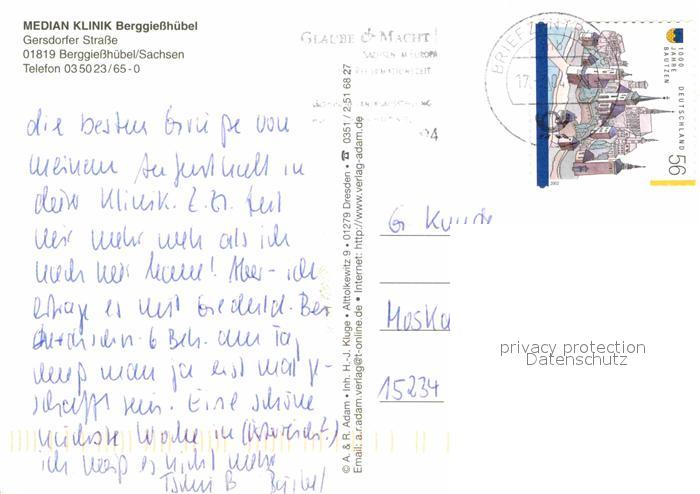 MEDIAN KLINIK Berggießhübel
Gersdorfer Straße
01819 Berggießhübel/Sachsen
Telefon 03 50 23 / 65 - 0
die besten Grüße von
meinem Aufenthalt in
der Klinik. Z. Zt. tut
mir mehr weh als ich
nach hier kam! Aber - ich
ertrage es mit Geduld. Bei
durchschn. 6 Beh. am Tag
muß man ja erst mal ge-
schafft sein. Eine schöne
nächste Woche in (Österreich?)
ich weiß es nicht mehr
Tschü B
© A. & R. Adam • Inh. H.-J. Kluge • Alttolkewitz 9 • 01279 Dresden • ☎ 0351 / 2 51 68 27
Email: a.r.adam.verlag@t-online.de • Internet: http://www.verlag-adam.de
GLAUBE & MACHT
SACHSEN IM EUROPA
DER REFORMATIONSZEIT
BRIEFZENTR
17.
1000
JAHRE
BAUTZEN
DEUTSCHLAND 56
2002
G
15234
privacy protection
Datenschutz